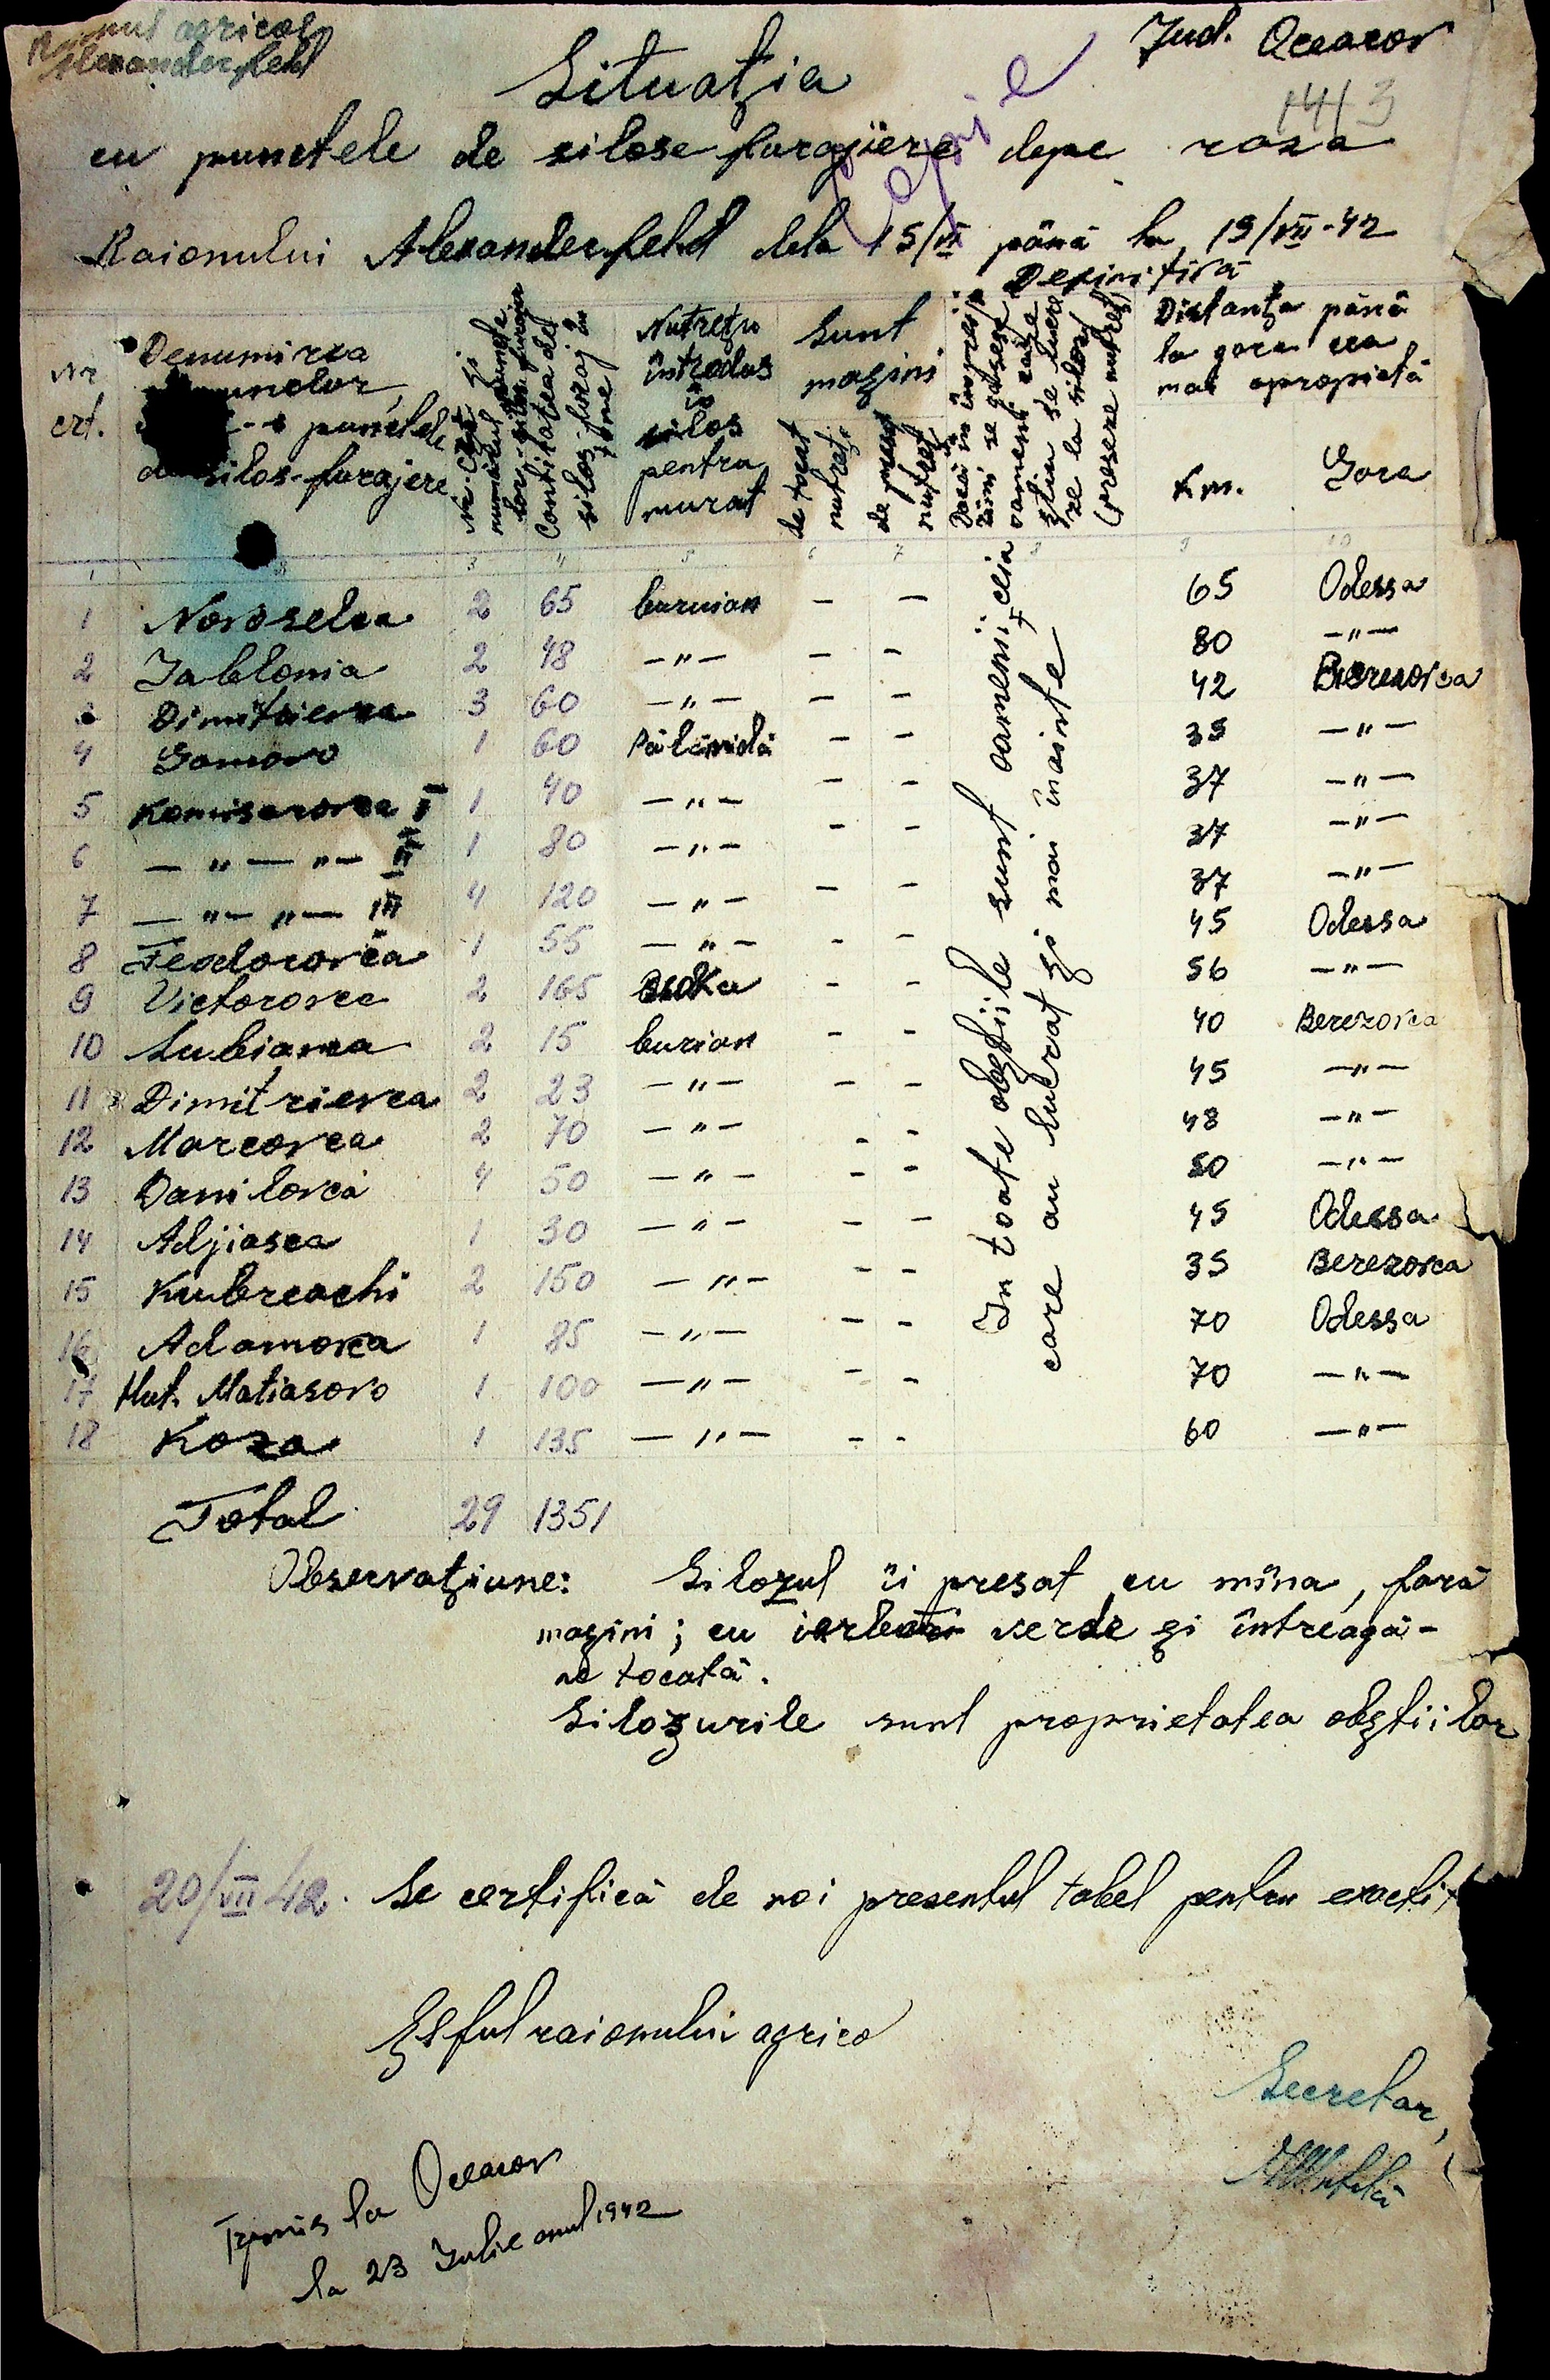 agricol
Alexanderfeld
Jud. Oceacov
Situaţia
14/3
Copie
cu punctele de silose furajiere depe raza
Raionului Alexanderfeld dela 15/VI până la 19/VII-42
Definitivă
Nr
crt.
Denumirea
punctele
silos-furajere
Nutreţu
întrodus
în
silos
pentru
murat
Sunt
maşini
de tocat
nutreţ
de presat
nutreţ
Distanţa până
la gara cea
mai apropietă
Km. Gara
1 3 4 5 6 7 8 9 10
1 Novoselca 2 65 buruian — — 65 Odessa
2 Jablonia 2 48 —"— — — 80 —"—
3 Dimitrievca 3 60 —"— — — 42 Berezovca
4 Gamovo 1 60 Pălămidă — — 35 —"—
5 Komisarovca I 1 40 —"— — — 37 —"—
6 —"—"— II 1 80 —"— — — 37 —"—
7 —"—"— III 4 120 —"— — — 37 —"—
8 Feodorovca 1 55 —"— — — 45 Odessa
9 Victorovca 2 165 — — 56 —"—
10 Lubianca 2 15 burian — — 40 Berezovca
11 Dimitrievca 2 23 —"— — — 45 —"—
12 Marcovca 2 70 —"— — — 48 —"—
13 Danilovca 4 50 —"— — — 50 —"—
14 Adjiasca 1 30 —"— — — 45 Odessa
15 Kubreachi 2 150 —"— — — 35 Berezovca
16 Adamovca 1 85 —"— — — 70 Odessa
17 Hut. Matiasovo 1 100 —"— — — 70 —"—
18 Koza 1 135 —"— — — 60 —"—
In toate obştiile sunt oameni,
care au lucrat şi mai înainte
Total 29 1351
Observaţiune: Silozul îi presat cu mîna, fară
maşini; cu verde şi întreagă-
ne tocată.
Silozurile sunt proprietatea obştiilor
20/VII 42. Se certifică de noi presentul tabel pentru exactit
Şeful raionului agrico
Secretar,
Trimis la Oceacov
la 23 Iulie anul 1942